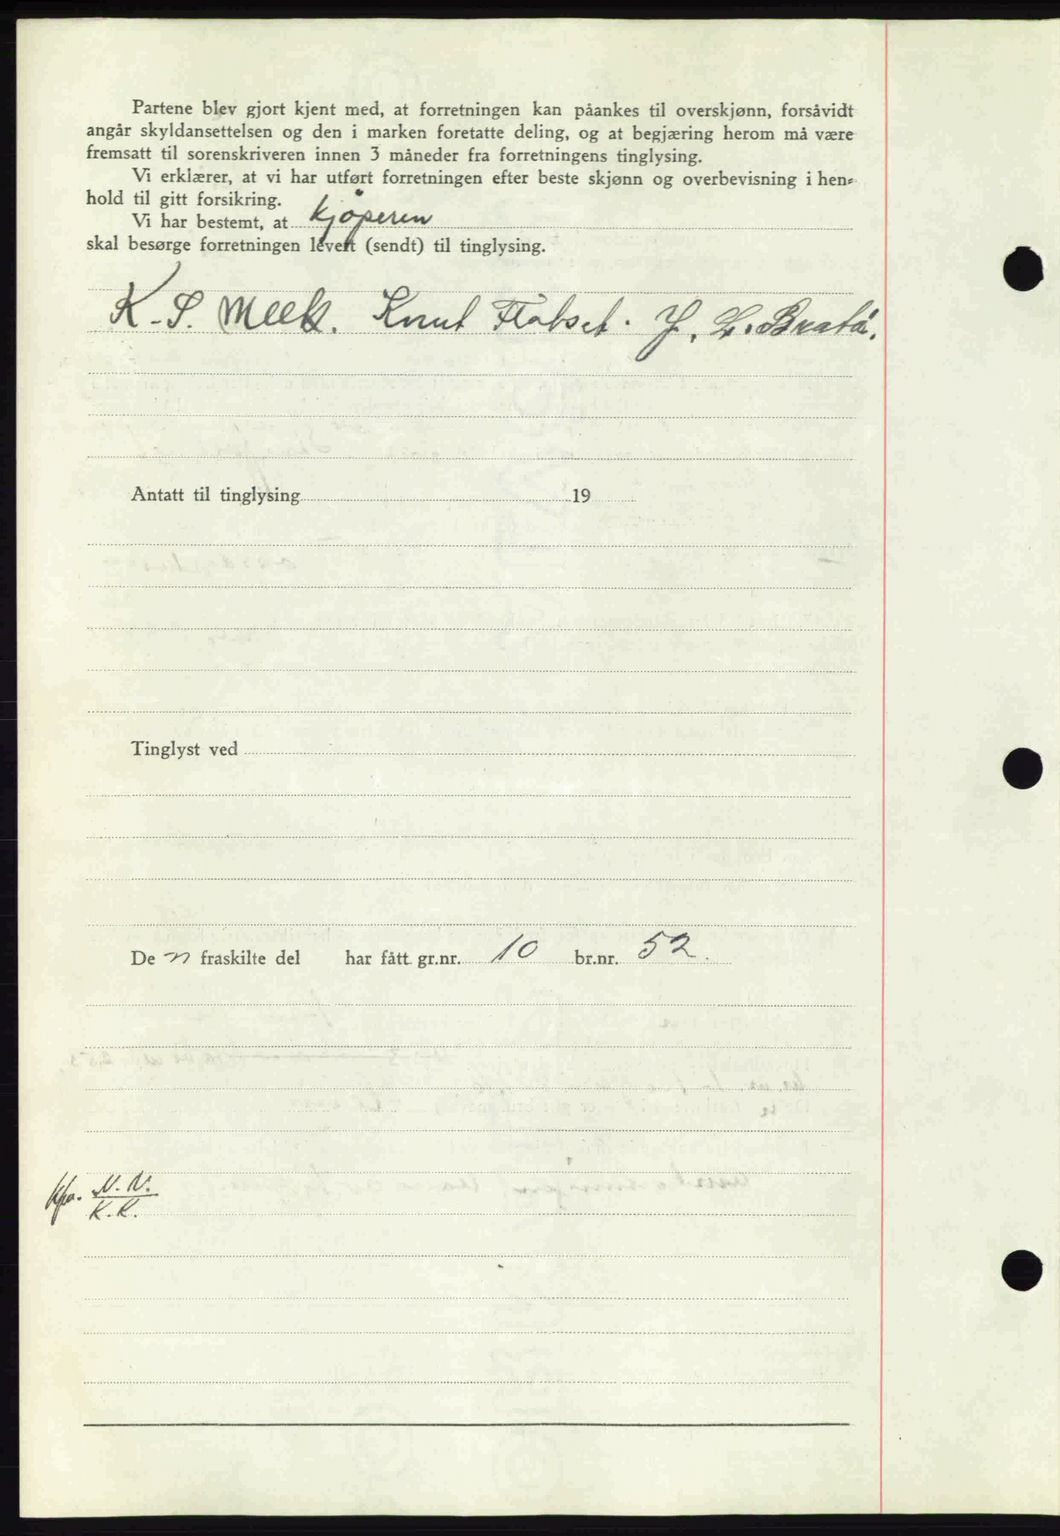 Partene blev gjort kjent med, at forretningen kan påankes til overskjønn, forsåvidt
angår skyldansettelsen og den i marken foretatte deling, og at begjæring herom må være
fremsatt til sorenskriveren innen 3 måneder fra forretningens tinglysing.
Vi erklærer, at vi har utført forretningen efter beste skjønn og overbevisning i hen-
hold til gitt forsikring.
Vi har bestemt, at kjöperen
skal besørge forretningen levert (sendt) til tinglysing.
K. S. Meek. Knut Flatset. J. L. Bratå.
Antatt til tinglysing 19
Tinglyst ved
De n fraskilte del har fått gr.nr. 10 br.nr. 52.
N. N.
K. K.